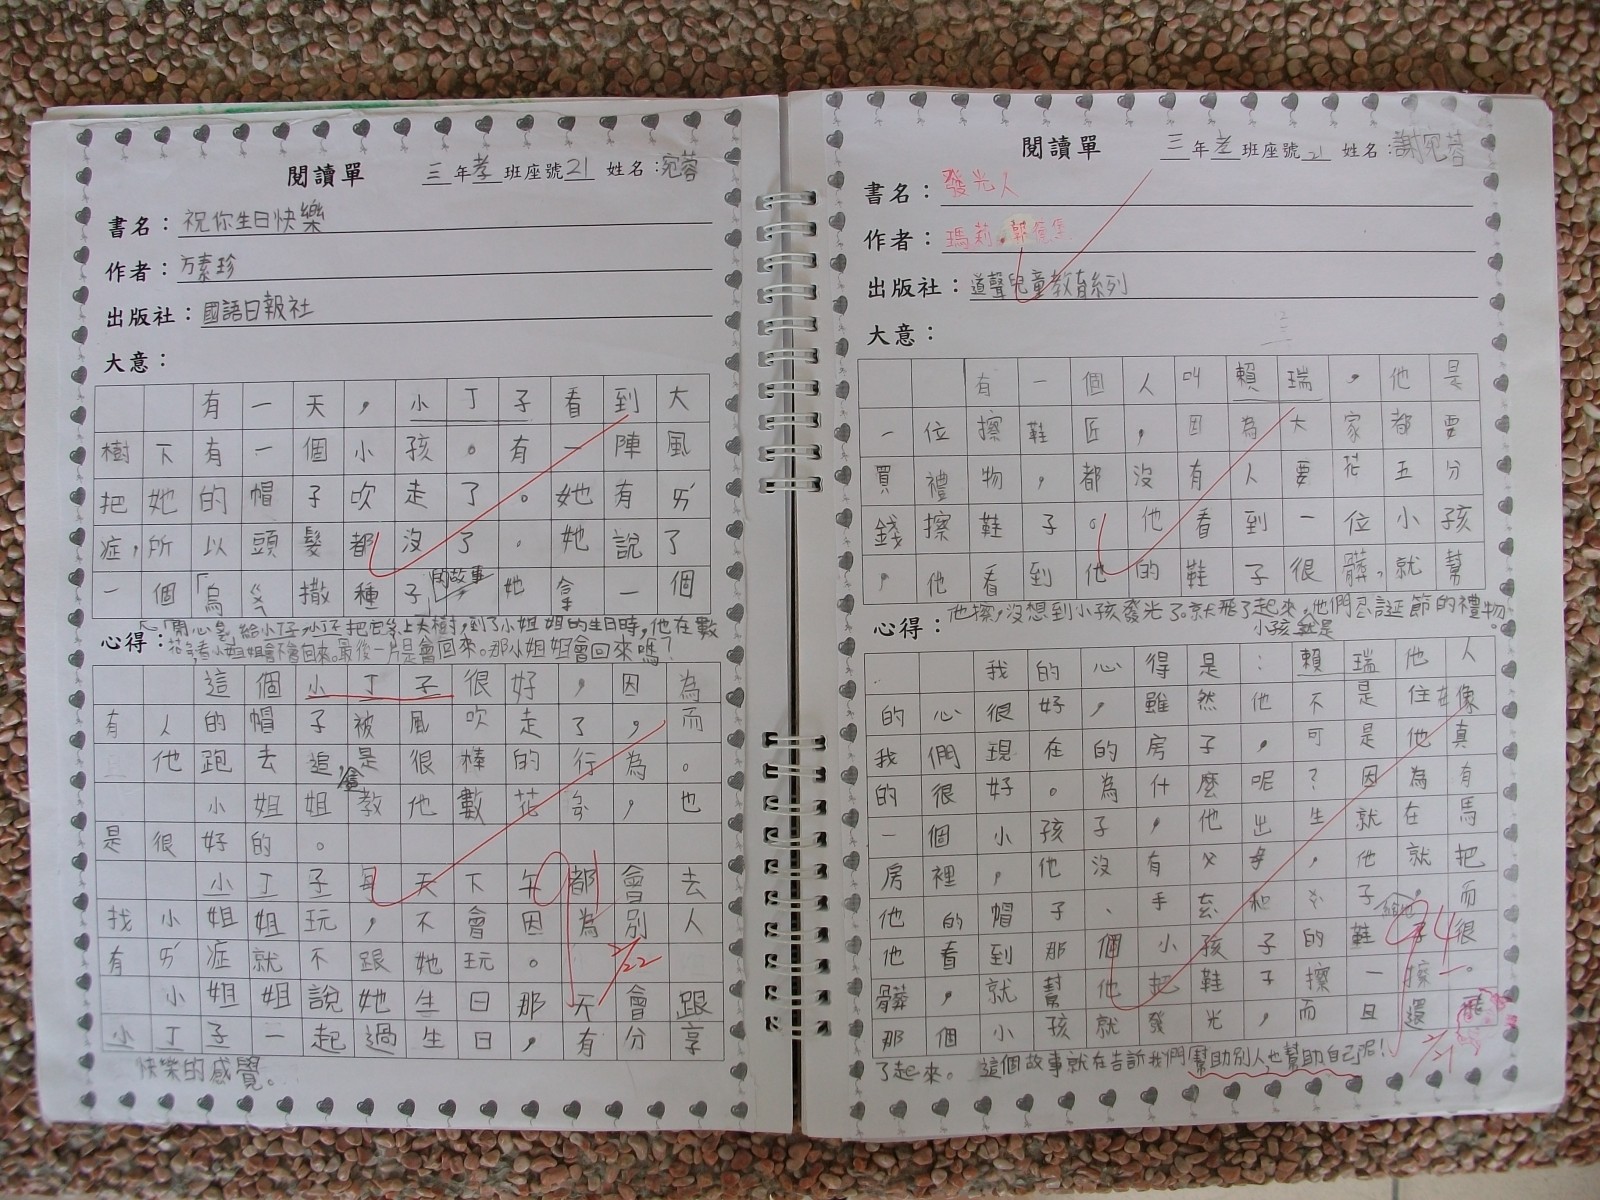 閱讀單 三年孝班座號21 姓名：宛蓉
書名：祝你生日快樂
作者：方素珍
出版社：國語日報社
大意：
有一天，小丁子看到大
樹下有一個小孩。有一陣風
把她的帽子吹走了。她有ㄞˊ
症，所以頭髮都沒了。她說了
一個「烏ㄍㄨㄟ撒種子的故事，她拿一個
「開心果」給小丁子，小丁子把它 上大樹，到了小姐姐的生日時，他在數
心得：
花 ，看小姐姐會不會回來。最後一片是會回來。那小姐姐會回來嗎？
這個小丁子很好，因為
有人的帽子被風吹走了，而
且他跑去追，是很棒的行為。
小姐姐會教他數花 ，也
是很好的。
小丁子每天下午都會去
找小姐姐玩，不會因為別人
有ㄞˊ症就不跟她玩。
小姐姐說她生日那天會跟
小丁子一起過生日，有分享
快樂的感覺。
2/22
閱讀單 三年孝班座號21 姓名：謝宛蓉
書名：發光人
作者：瑪莉．郭
出版社：道聲兒童教育系列
大意：
有一個人叫賴瑞，他是
一位擦鞋匠，因為大家都要
買禮物，都沒有人要花五分
錢擦鞋子。他看到一位小孩
，他看到他的鞋子很髒，就幫
他擦，沒想到小孩發光了。就飛了起來，他們 誕節的禮物
小孩就是
心得：
我的心得是：賴瑞他人
的心很好，雖然他不是住在像
我們現在的房子，可是他真
的很好。為什麼呢？因為有
一個小孩子，他出生就在馬
房裡，他沒有父母，他就把
他的帽子、手套和 子給他，而
他看到那個小孩子的鞋子很
髒，就幫他把鞋子擦一擦。
那個小孩就發光，而且還飛
了起來。這個故事就在告訴我們幫助別人也幫助自己呢！
94
2/21